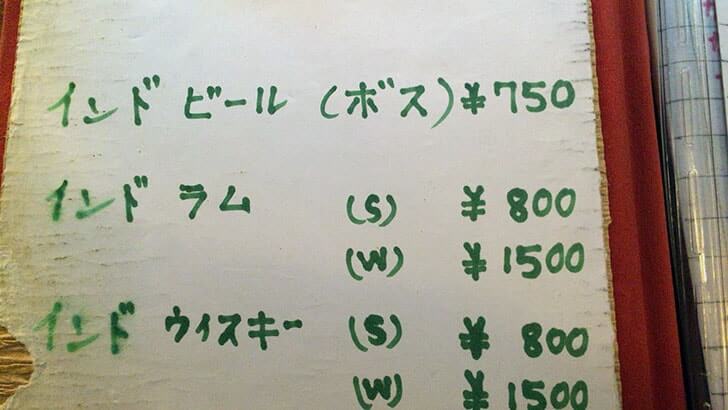 インド ビール (ボス) ¥750
インド ラム (S) ¥800
(W) ¥1500
インド ウィスキー (S) ¥800
(W) ¥1500